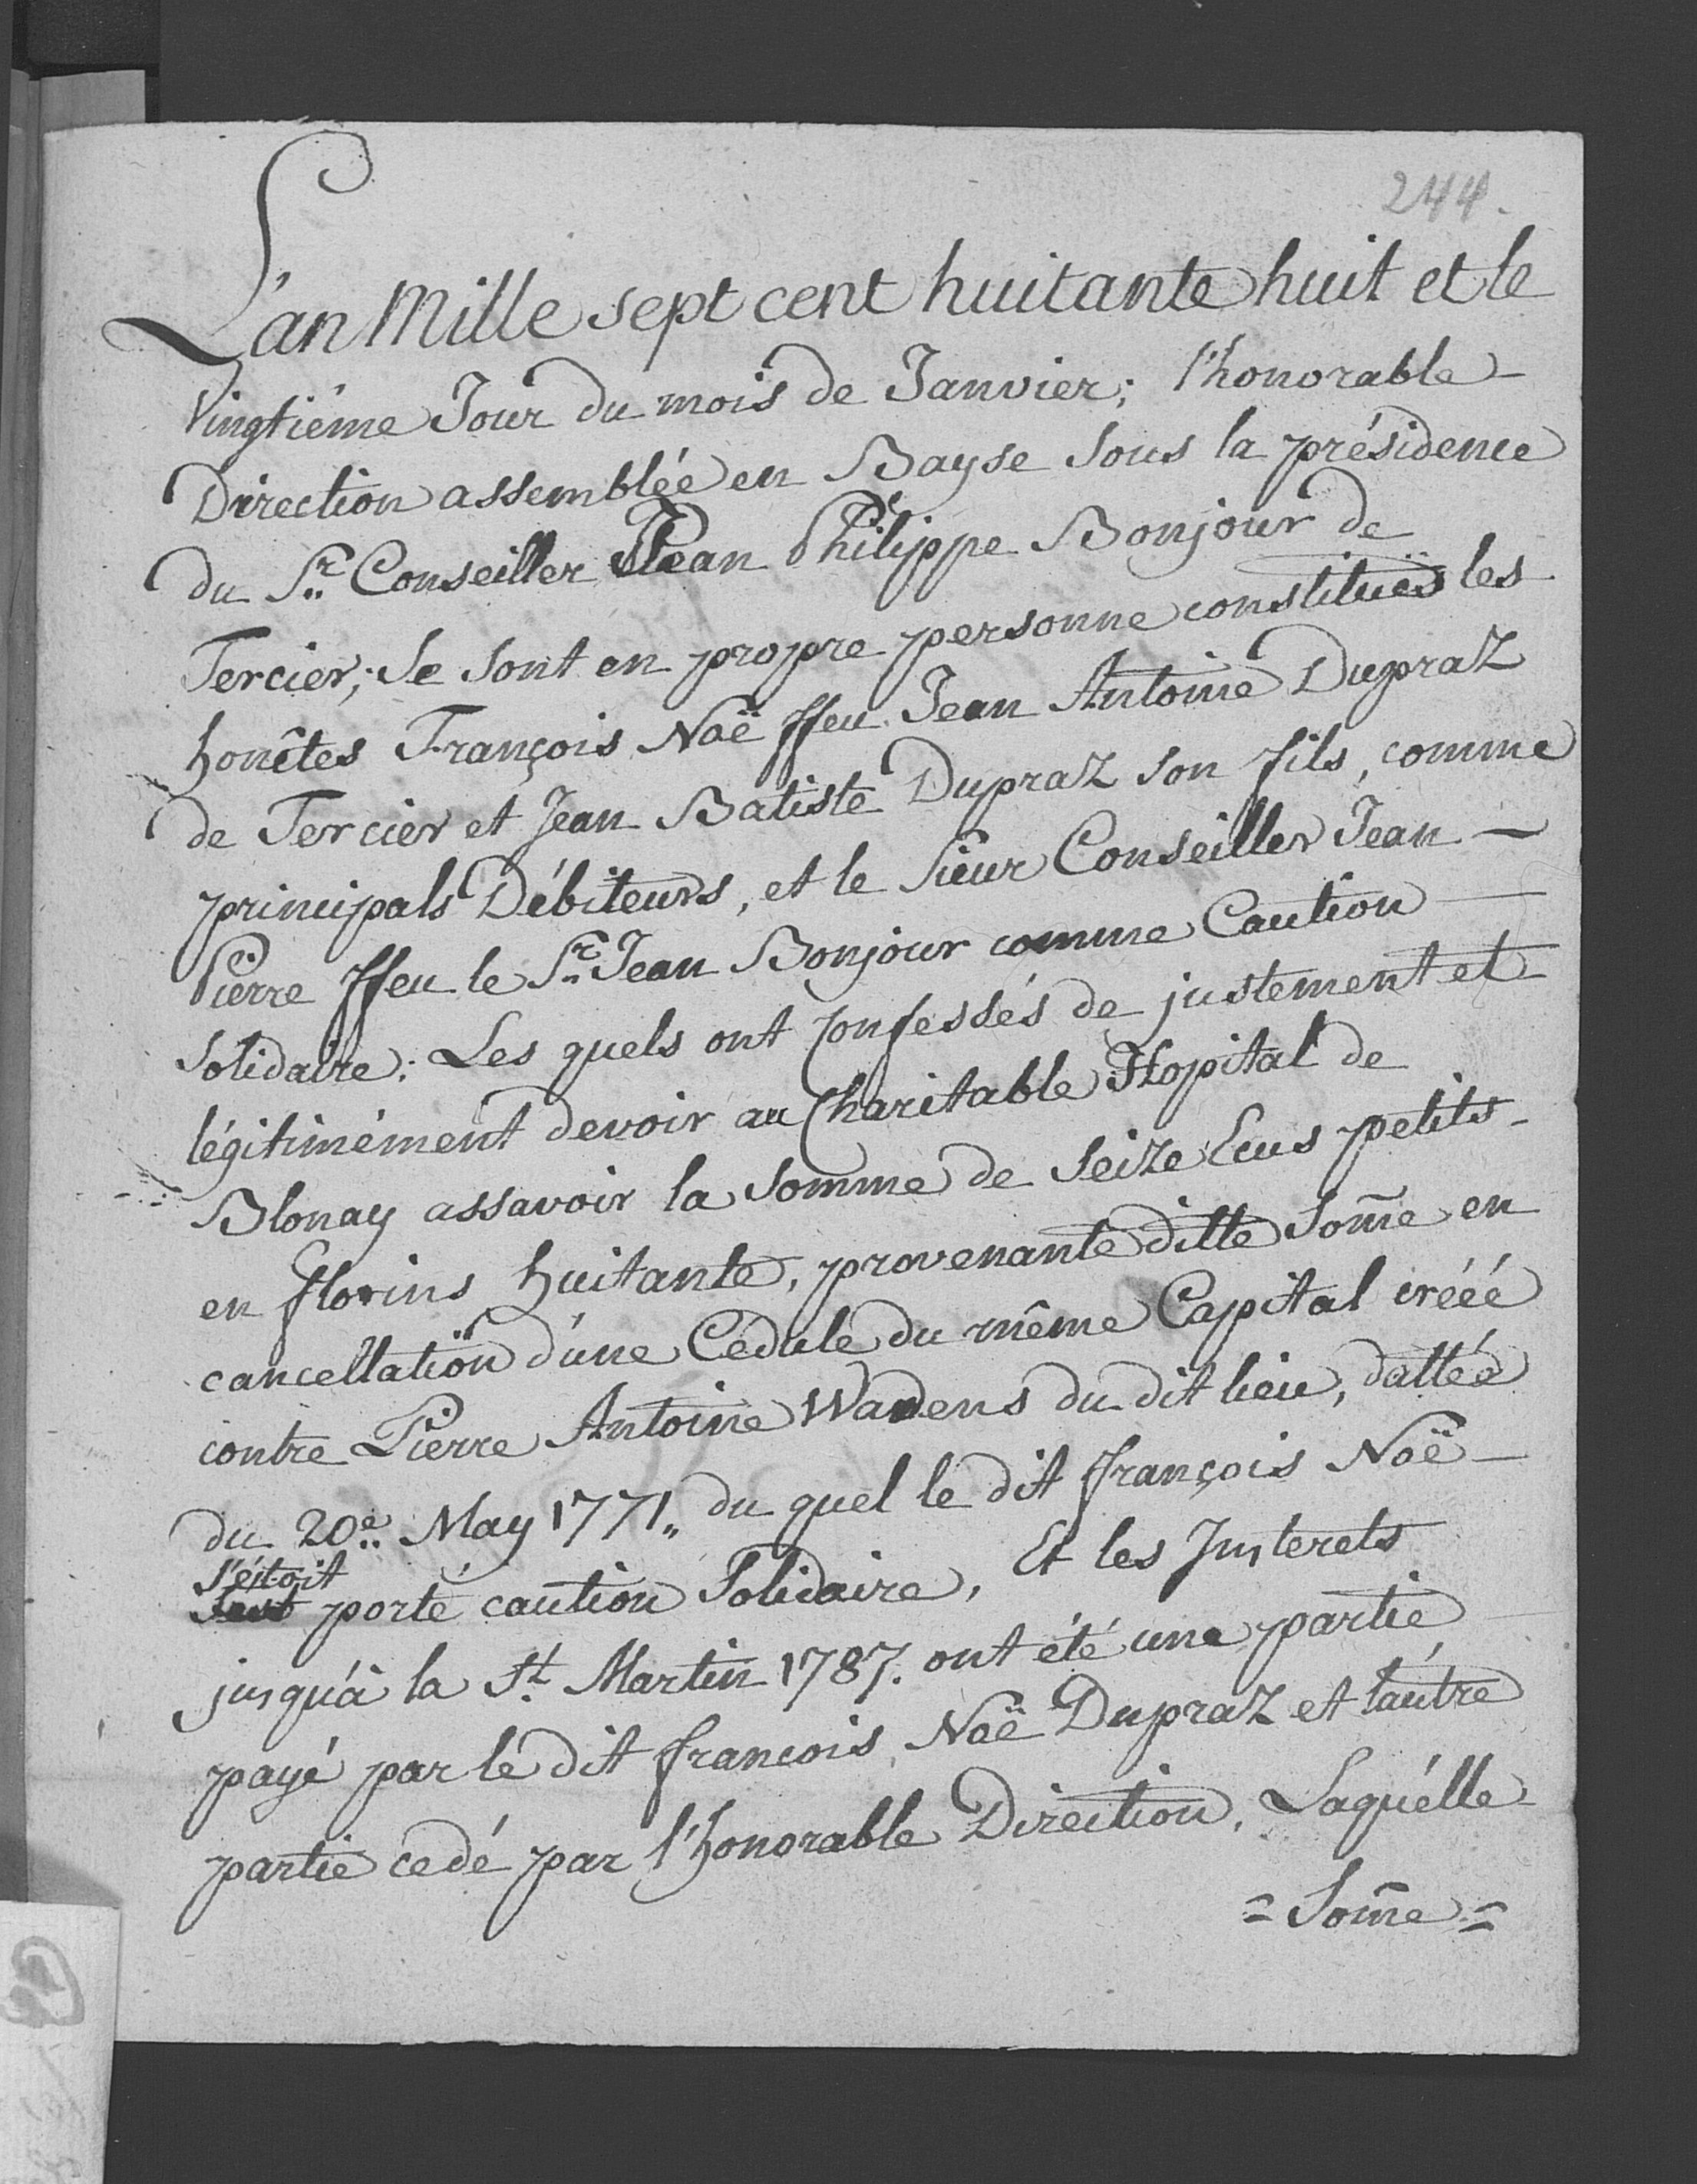 244.
L'an Mille sept cent huitante huit et le
Vingtiéme Jour du mois de Janvier; l'honorable
Direction assemblée en Bayse sous la présidence
du Sr. Conseiller Jean Philippe Bonjour de
Tercier; se sont en propre personne constitués les
honêtes François Noë ffeu Jean Antoine Dupraz
de Tercier et Jean Batiste Dupraz son fils, comme
principals Débiteurs, et le sieur Conseiller Jean
Pierre ffeu le Sr. Jean Bonjour comme Caution
solidaire; Les quels ont confessés de justement et
légitimément devoir au Charitable Hopital de
Blonay assavoir la somme de seize Ecus petits
en florins huitante, provenante ditte some en
cancellation d'une Cédule du même Capital créée
contre Pierre Antoine Wardens du dit lieu, dattée
du 20e. May 1771,, du quel le dit françois Noë
s'étoit
porté caution Solidaire, Et les Interets
jusqu'à la St. Martin 1787. ont été une partie
payé par le dit francois Noë Dupraz et l'autre
partie cedé par l'honorable Direction, Laquélle
= Some =